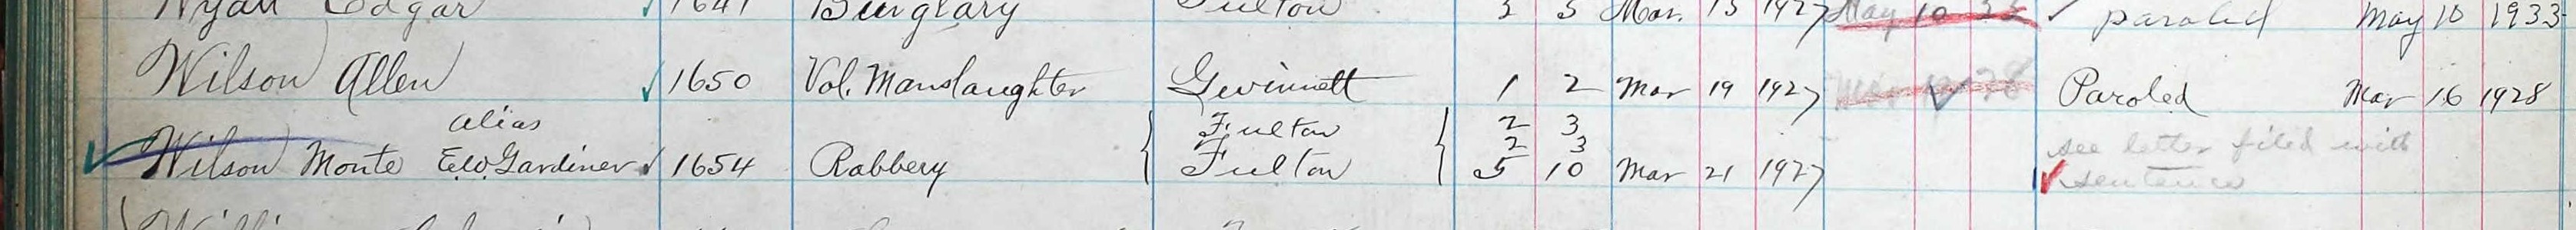 Wyatt Edgar ✓ 1641 Burglary Fulton 3 5 Mar. 15 1927 May 10 33 ✓ paroled May 10 1933
Wilson Allen ✓ 1650 Vol. Manslaughter Gwinnett 1 2 Mar 19 1927 Paroled Mar 16 1928
alias Fulton 2 3
2 3 see letter filed with
✓ Wilson Monte Ed. Gardiner ✓ 1654 Robbery Fulton 5 10 Mar 21 1927 ✓ sentence